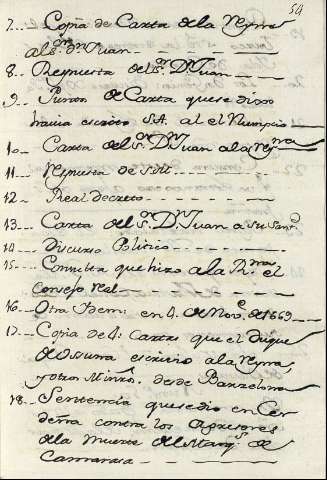 54
7.. Copia de Carta de la Reyna
al Sr. Dn Juan
8.. Respuesta del Sr. Dn Juan
9.. Punto de Carta que se dixo
havia escrito S.A. al el Nuncio
10.. Carta del Sr. Dn Juan a la Reyna
11.. Respuesta de S.M.
12.. Real decreto
13.. Carta del Sr. Dn Juan a Su Santd.
14.. Discurso Politico
15.. Consulta que hizo a la Rna. el
Consejo Real
16.. Otra Idem: en 4. de Nove. de 1669
17.. Copia de 4: Cartas que el Duque
de Osuna escrivio a la Reyna,
y otros Minros. desde Barzelona
18.. Sentencia que se dio en Cer
deña contra los Agresores
de la muerte del Marqs. de
Camarasa